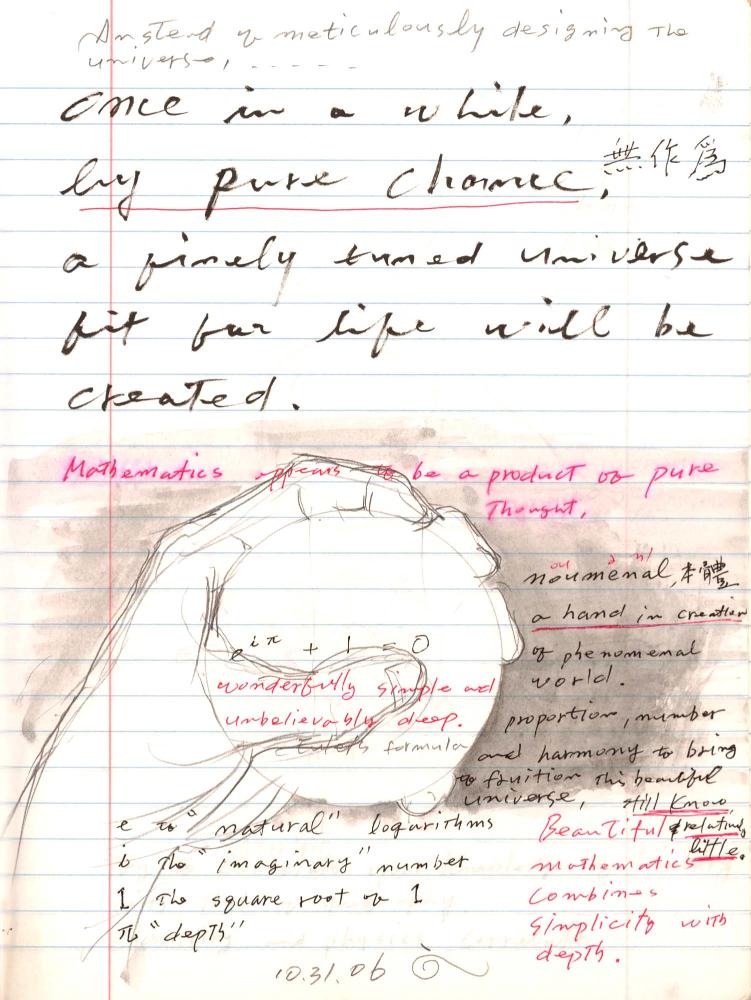 Instead of meticulously designing the
universe, . . . . . .
once in a while,
by pure chance,
無作為
a finely tuned universe
fit for life will be
created.
Mathematics appears to be a product of pure
Thought,
noumenal, 本體
a hand in creation
of phenomenal
world.
e^iπ + 1 = 0
wonderfully simple and
unbelievably deep.
Euler's formula
proportion, number
and harmony to bring
to fruition this beautiful
universe,
still know
relatively
little.
e to "natural" logarithms
i The "imaginary" number
1 The square root of 1
π "depth"
Beautiful
mathematics
combines
simplicity with
depth.
10.31.06